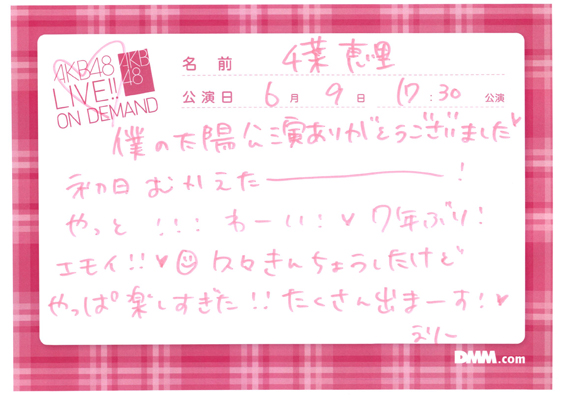 AKB48
LIVE!!
ON DEMAND
AKB
48
名 前 千葉 恵里
公演日 6月 9日 17:30 公演
僕の太陽公演ありがとうございました♥
初日 むかえたー!
やっと !!! わーい!♥ 7年ぶり!
エモイ!!♥☺ 久々きんちょうしたけど
やっぱ楽しすぎた!! たくさん出まーす!♥
えりー
DMM.com